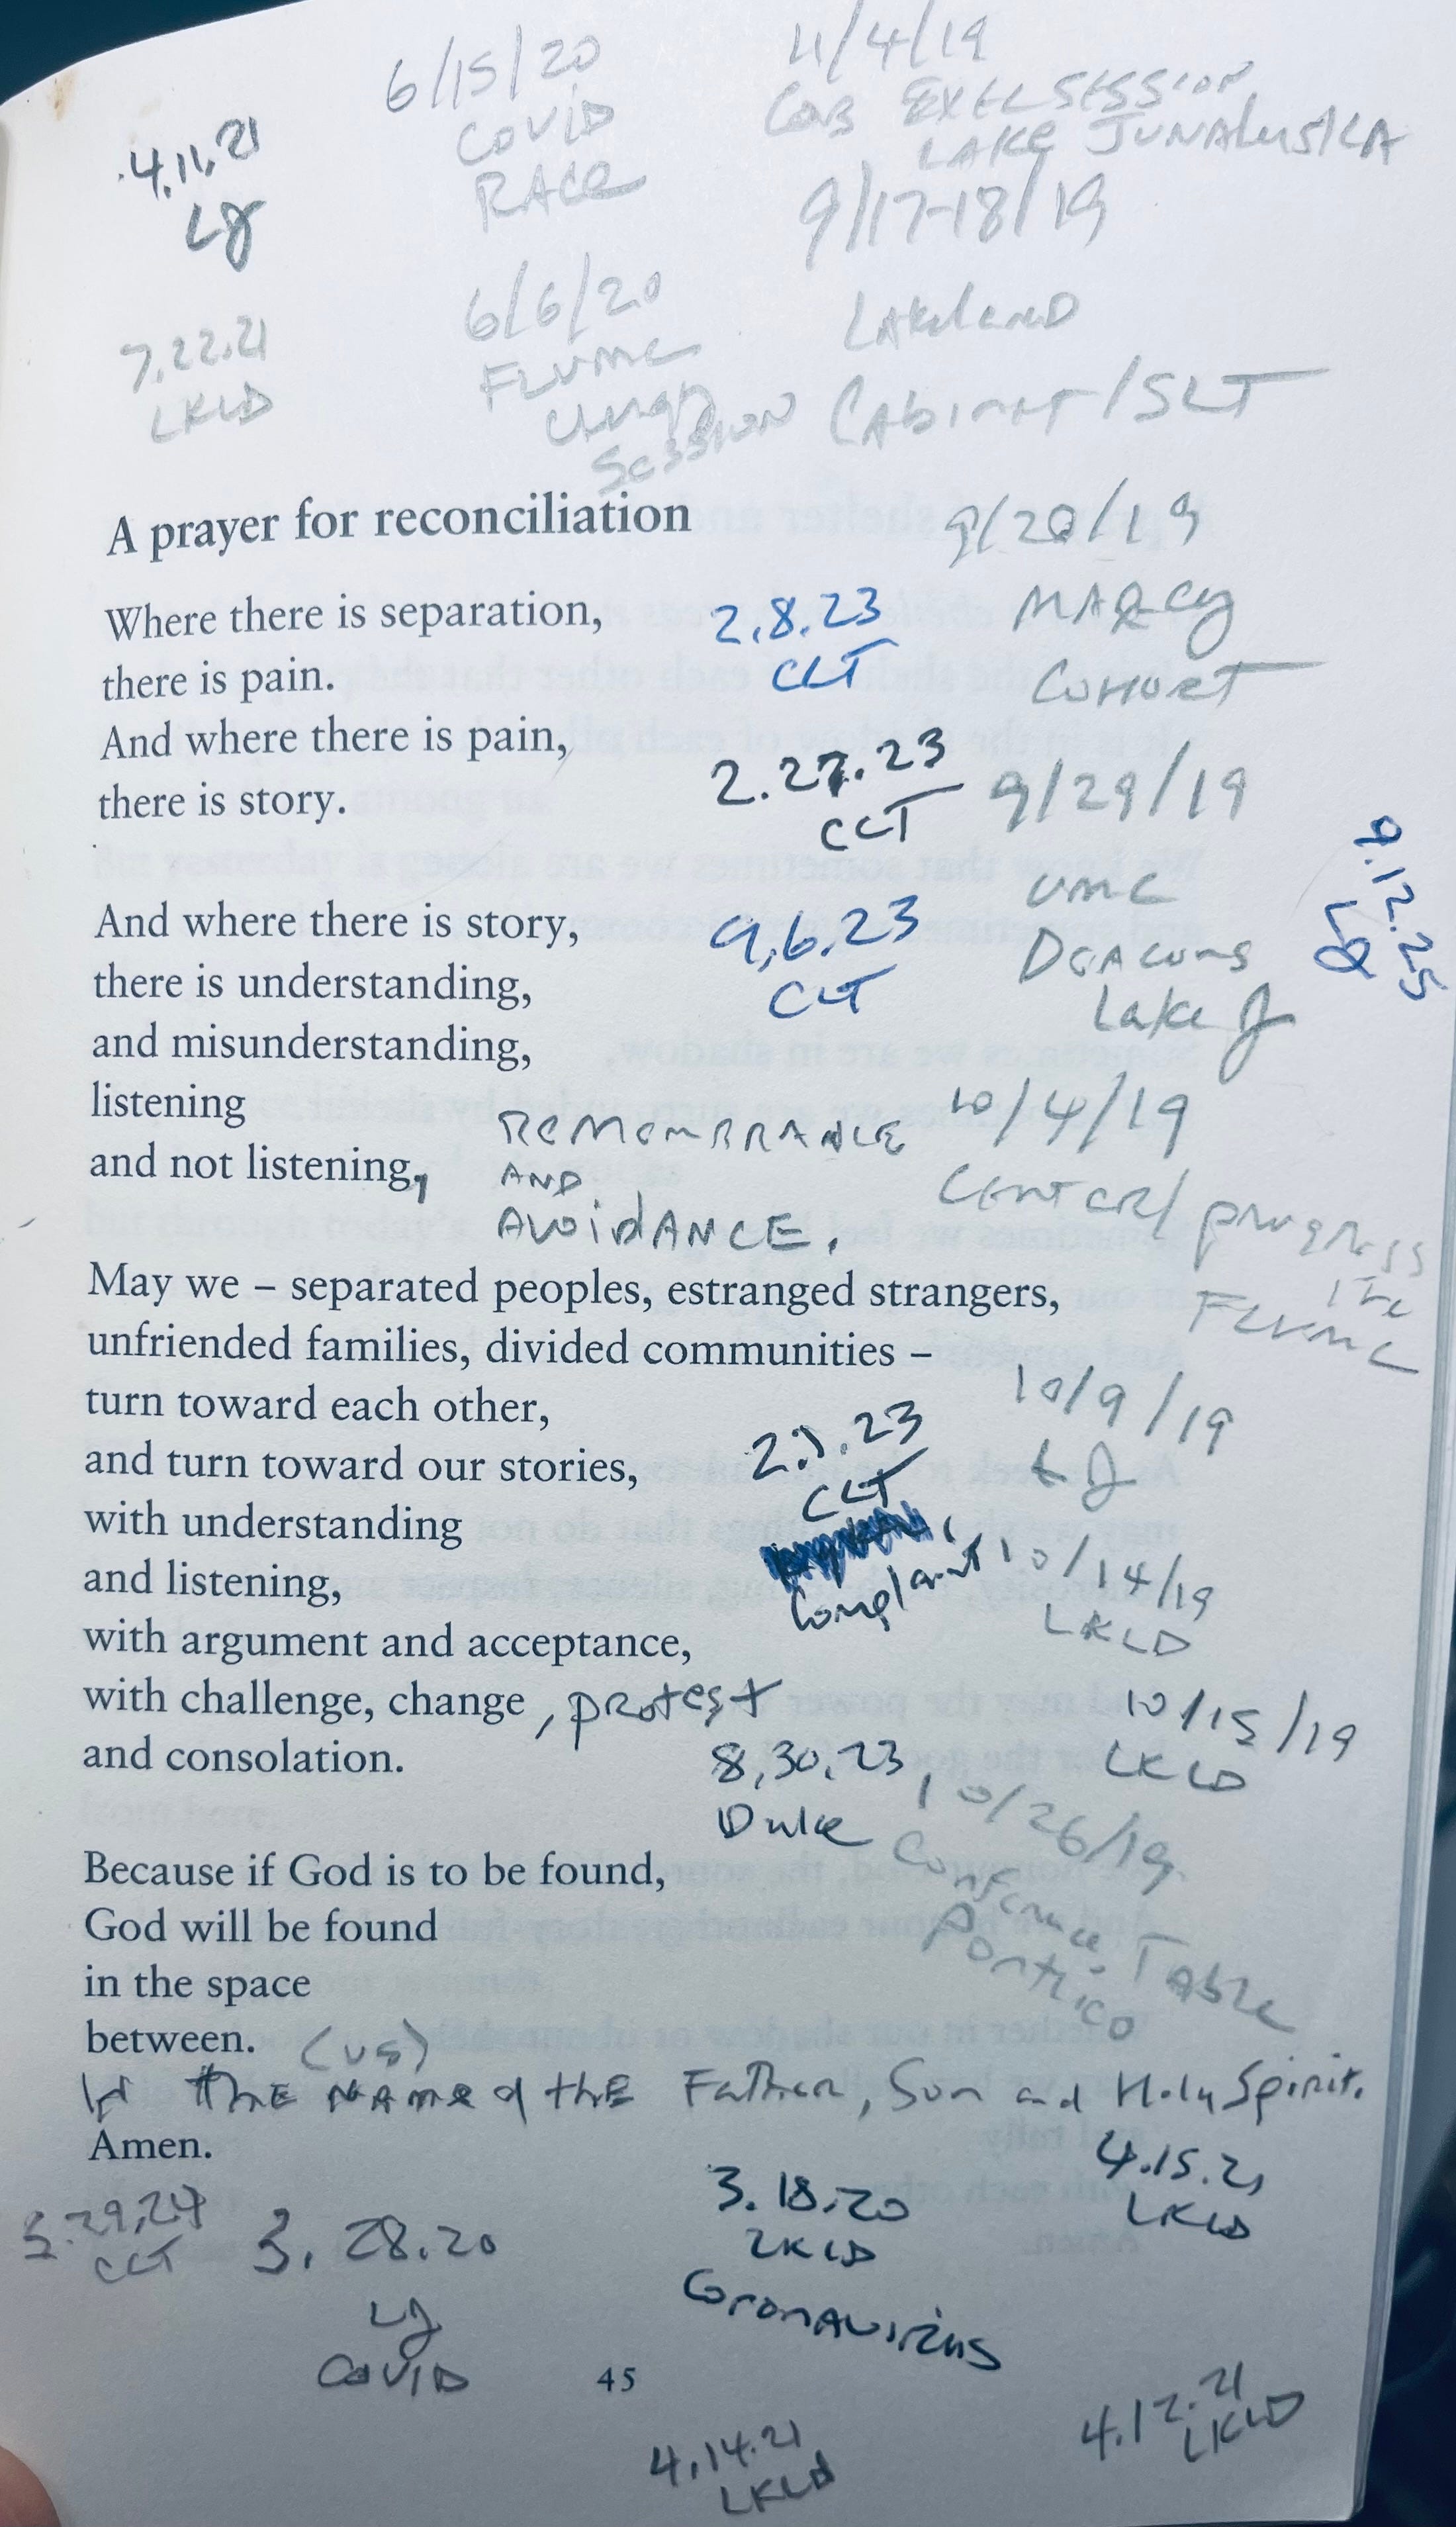 6/15/20
COVID
RACE
11/4/19
EXEC SESSION
LAKE JUNALUSKA
4.11.21
LJ
9/17-18/19
LakelanD
CABinet/SLT
6/6/20
FLUMC
SESSION
7.22.21
LKLD
A prayer for reconciliation
9/20/19
Where there is separation,
2.8.23
MARCy
there is pain.
CLT
COHORT
And where there is pain,
2.27.23
9/29/19
there is story.
CCT
9.12.25
LJ
UMC
And where there is story,
9.6.23
DEACONS
there is understanding,
CLT
Lake J
and misunderstanding,
listening
REMEMBRANCE
10/4/19
and not listening,
AND
CENTER/progress
AVOIDANCE.
FLUMC
May we – separated peoples, estranged strangers,
unfriended families, divided communities –
10/9/19
turn toward each other,
2.1.23
LJ
and turn toward our stories,
CLT
with understanding
Complaint
10/14/19
and listening,
LKLD
with argument and acceptance,
with challenge, change, protest
10/15/19
and consolation.
8.30.23
LKLD
Duke
10/26/19
Conference Table
Portico
Because if God is to be found,
God will be found
in the space
between. (us)
IN THE NAME of the Father, Son and Holy Spirit.
Amen.
4.15.21
LKLD
3.18.20
LKLD
Coronavirus
5.29.24
CLT
3.28.20
LJ
COVID
45
4.12.21
LKLD
4.14.21
LKLD